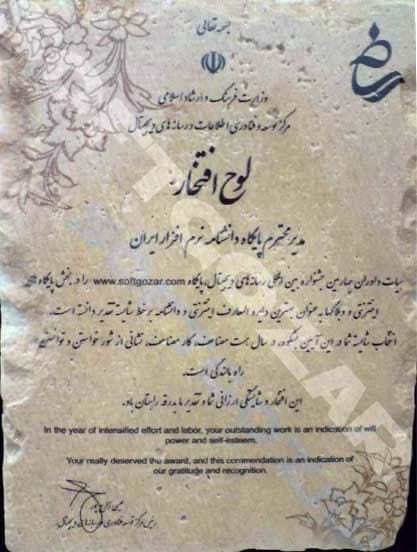 بسمه تعالی
وزارت فرهنگ و ارشاد اسلامی
مرکز توسعه فناوری اطلاعات و رسانه های دیجیتال
لوح افتخار
مدیر محترم پایگاه دانشنامه نرم افزار ایران
هیات داوران چهارمین جشنواره بین المللی رسانه های دیجیتال، پایگاه www.softgozar.com را در بخش پایگاه های
اینترنتی و وبلاگها به عنوان بهترین دایره المعارف اینترنتی و دانشنامه بر خط شایسته تقدیر دانسته است.
انتخاب شایسته شما در این آیین باشکوه، در سال همت مضاعف، کار مضاعف، نشانی از شور خواستن و توانستن در
راه بالندگی است.
این افتخار و شایستگی ارزانی شما و تقدیر ما بدرقه راهتان باد.
In the year of intensified effort and labor, your outstanding work is an indication of will
power and self-esteem.
Your really deserved the award, and this commendation is an indication of
our gratitude and recognition.
رئیس مرکز توسعه فناوری و رسانه های دیجیتال